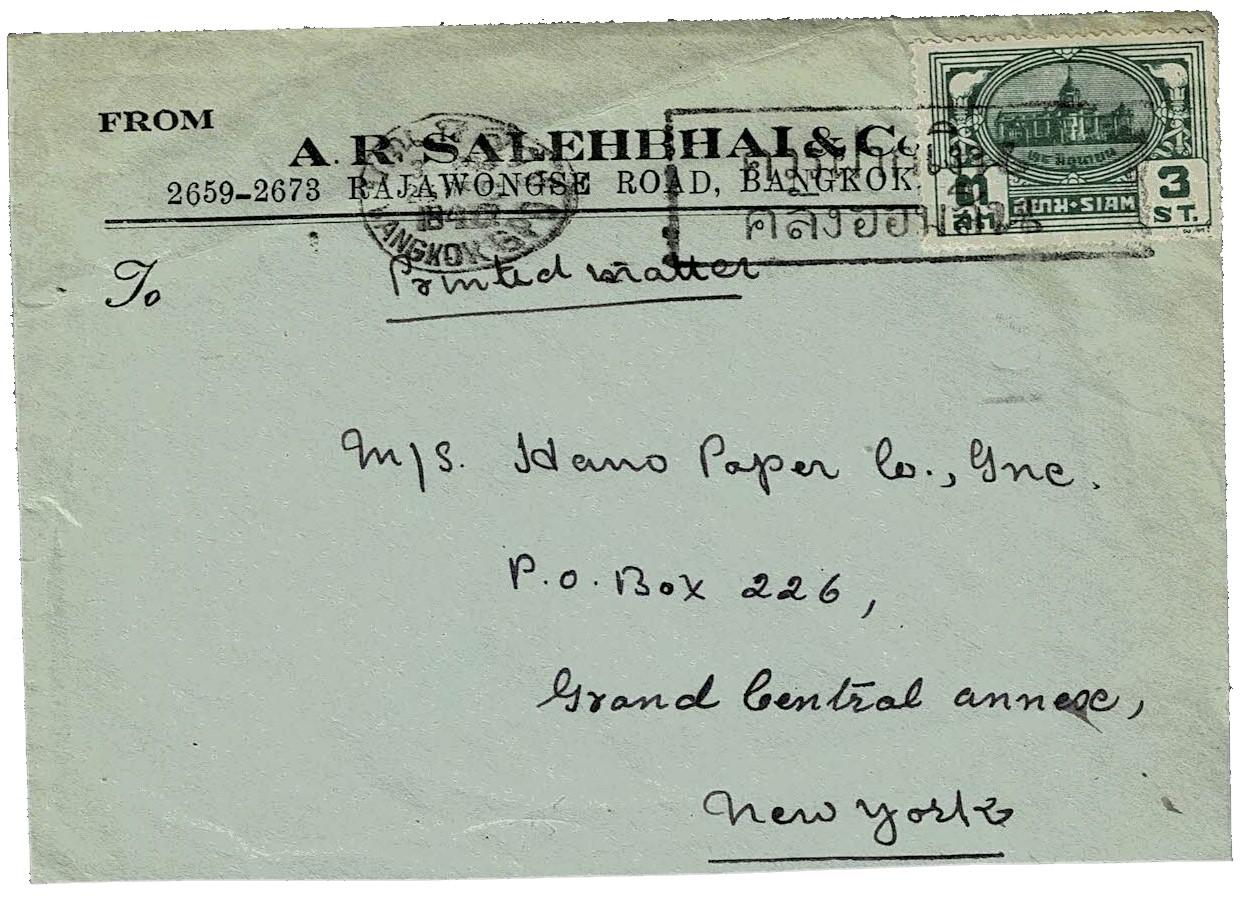 FROM
A. R. SALEHBHAI & Co
2659-2673 RAJAWONGSE ROAD, BANGKOK.
BANGKOK G.P.O
คลังออมสิน
๓ 3
สต. สยาม SIAM ST.
๒๔ มิถุนายน
To
Printed matter
M/S. Hano Paper Co., Inc.
P.O. Box 226,
Grand Central annexe,
New York